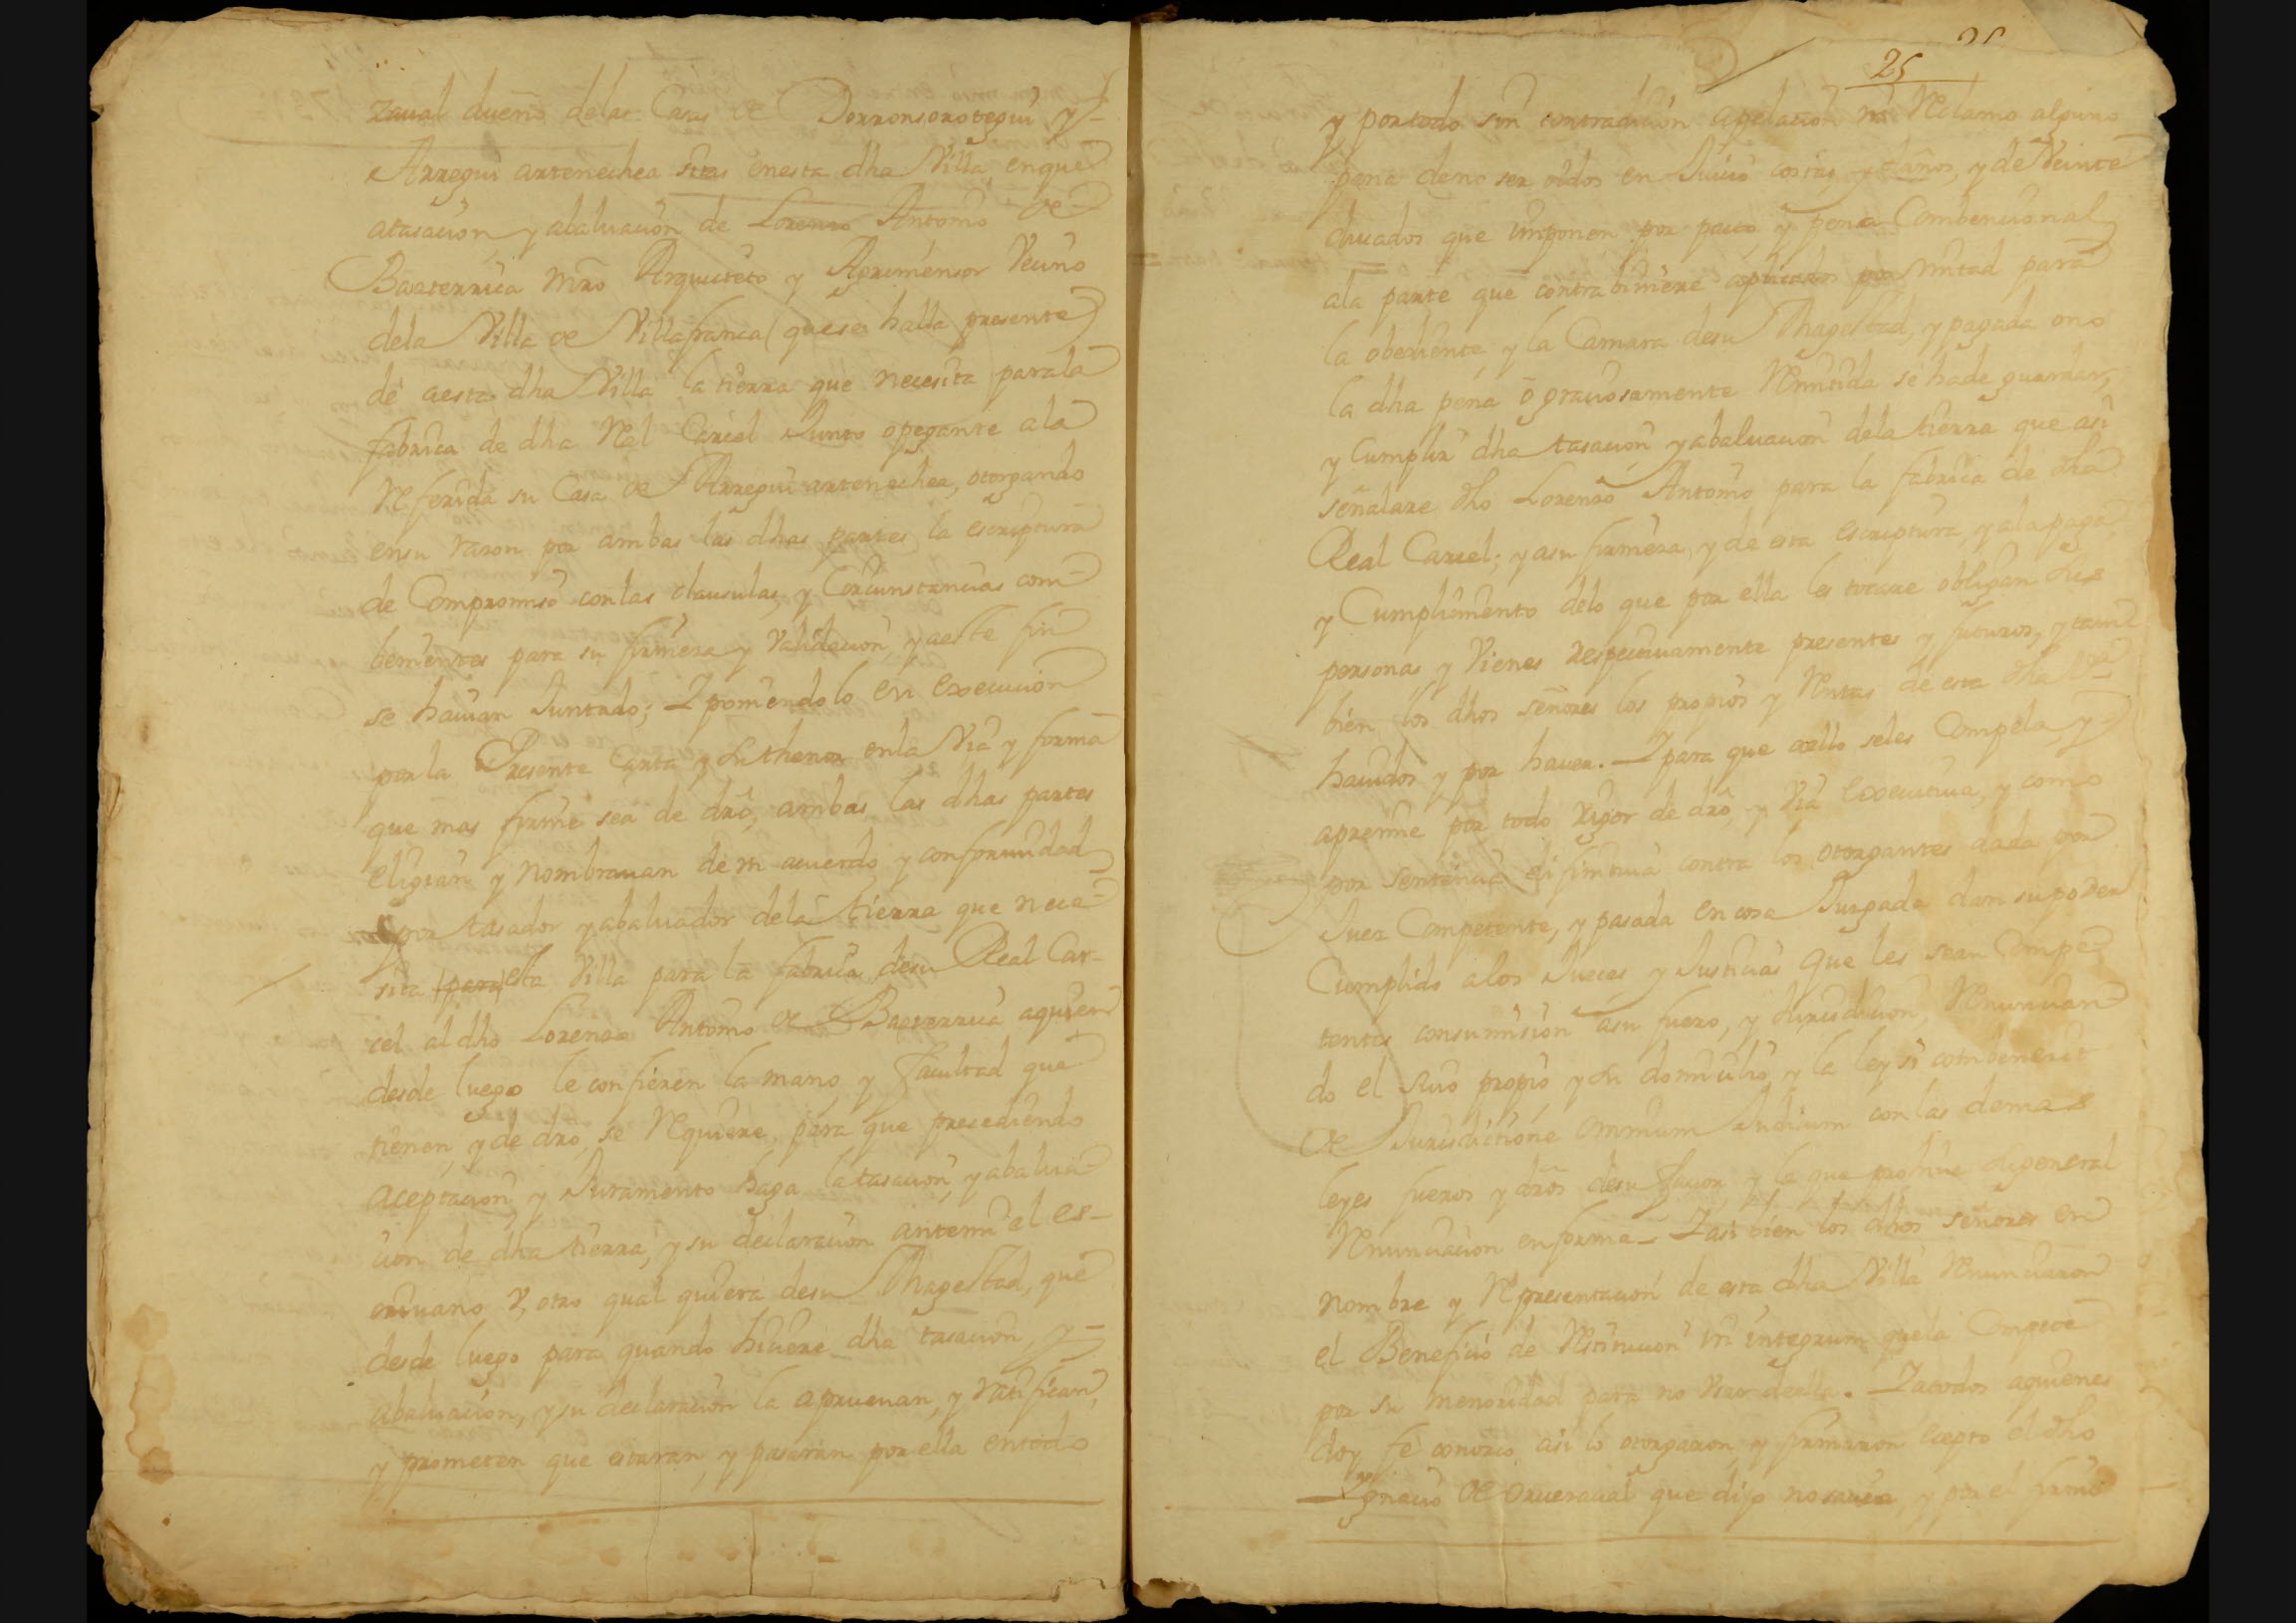 zaual dueño delas Casas de Dorronsorotegui y
Arregui artenechea sitas enesta dha Villa, enque
atasacion, y abaluacion de Lorenzo Antonio de
Bazterrica mro Arquitecto y Agrimensor Vecino
dela Villa de Villafranca (quese halla presente)
dé aesta dha Villa la tierra que necesita parala
fabrica de dha Rl Carcel Junto opegante ala
Referida su Casa de Arregui artenechea, otorgando
ensu razon por ambas las dhas partes la escriptura
de Compromiso conlas clausulas, y Circunstancias com-
benientes para su firmeza y Validacion, yaeste fin
se hauian Juntado; Y poniendolo en execucion
porla Presente Carta y su thenor enla Via y forma
que mas firme sea de dro, ambas las dhas partes
eligian y nombrauan de un acuerdo y conformidad
por tasador yabaluador dela tierra que nece-
sita para esta Villa para la fabrica desu Real Car-
cel al dho Lorenzo Antonio de Bazterrica aquien
desde luego le confieren la mano, y facultad que
tienen, y de dro se Requiere, para que precediendo
aceptacion, y Juramento haga latasacion, yabalua-
cion de dha tierra, y su declaracion antemi el es-
criuano, V, otro qual quiera desu Magestad, que
desde luego para quando hiciere dha tasacion, y
abaluacion, y su declaracion la aprueuan, y ratifican,
y prometen que estaran, y pasaran por ella entodo
25
y portodo sin contradicion apelacion ni Reclamo alguno
pena deno ser oidos en Juicio costas, y daños, y de Veinte
ducados que imponen por pacto, y pena Combencional
ala parte que contrabiniere aplicados por mitad para
la obediente, y la Camara desu Magestad, y pagada ono
la dha pena ō graciosamente Remitida se hade guardar,
y Cumplir dha tasacion, yabaluacion dela tierra que asi
señalare dho Lorenzo Antonio para la fabrica de dha
Real Carcel; y asu firmeza, y de esta escriptura, y ala paga,
y Cumplimiento delo que por ella les tocare obligan sus
personas y Vienes respectiuamente presentes y futuros, y tam-
bien los dhos señores los propios y Rentas de esta dha Va
hauidos y por hauer. Y para que aello seles Compela, y
apremie por todo rigor de dro, y Via executiua, y como
por sentencia difinitiua contra los otorgantes dada por
Juez Competente, y pasada en cosa Juzgada dan su poder
Cumplido alos Jueces y Justicias que les sean Compe-
tentes consumision asu fuero, y Jurisdicion, Renuncian-
do el suio propio, y su domicilio, y la ley si combenerit
de Jurisdictione omnium Judicum con las demas
leyes fueros y dros desu fauor y la que prohiue la general
Renunciacion enforma_ Y asi bien los dhos señores en
nombre y Representacion de esta dha Villa Renunciaron
el Beneficio de Restitucion in integrum quela Compete
por su menoridad para no Vsar della. Y atodos aquienes
doy fe conozco, asi lo otorgaron, y firmaron ecepto el dho
Ygnacio de que dijo nosauer, y por el firmo